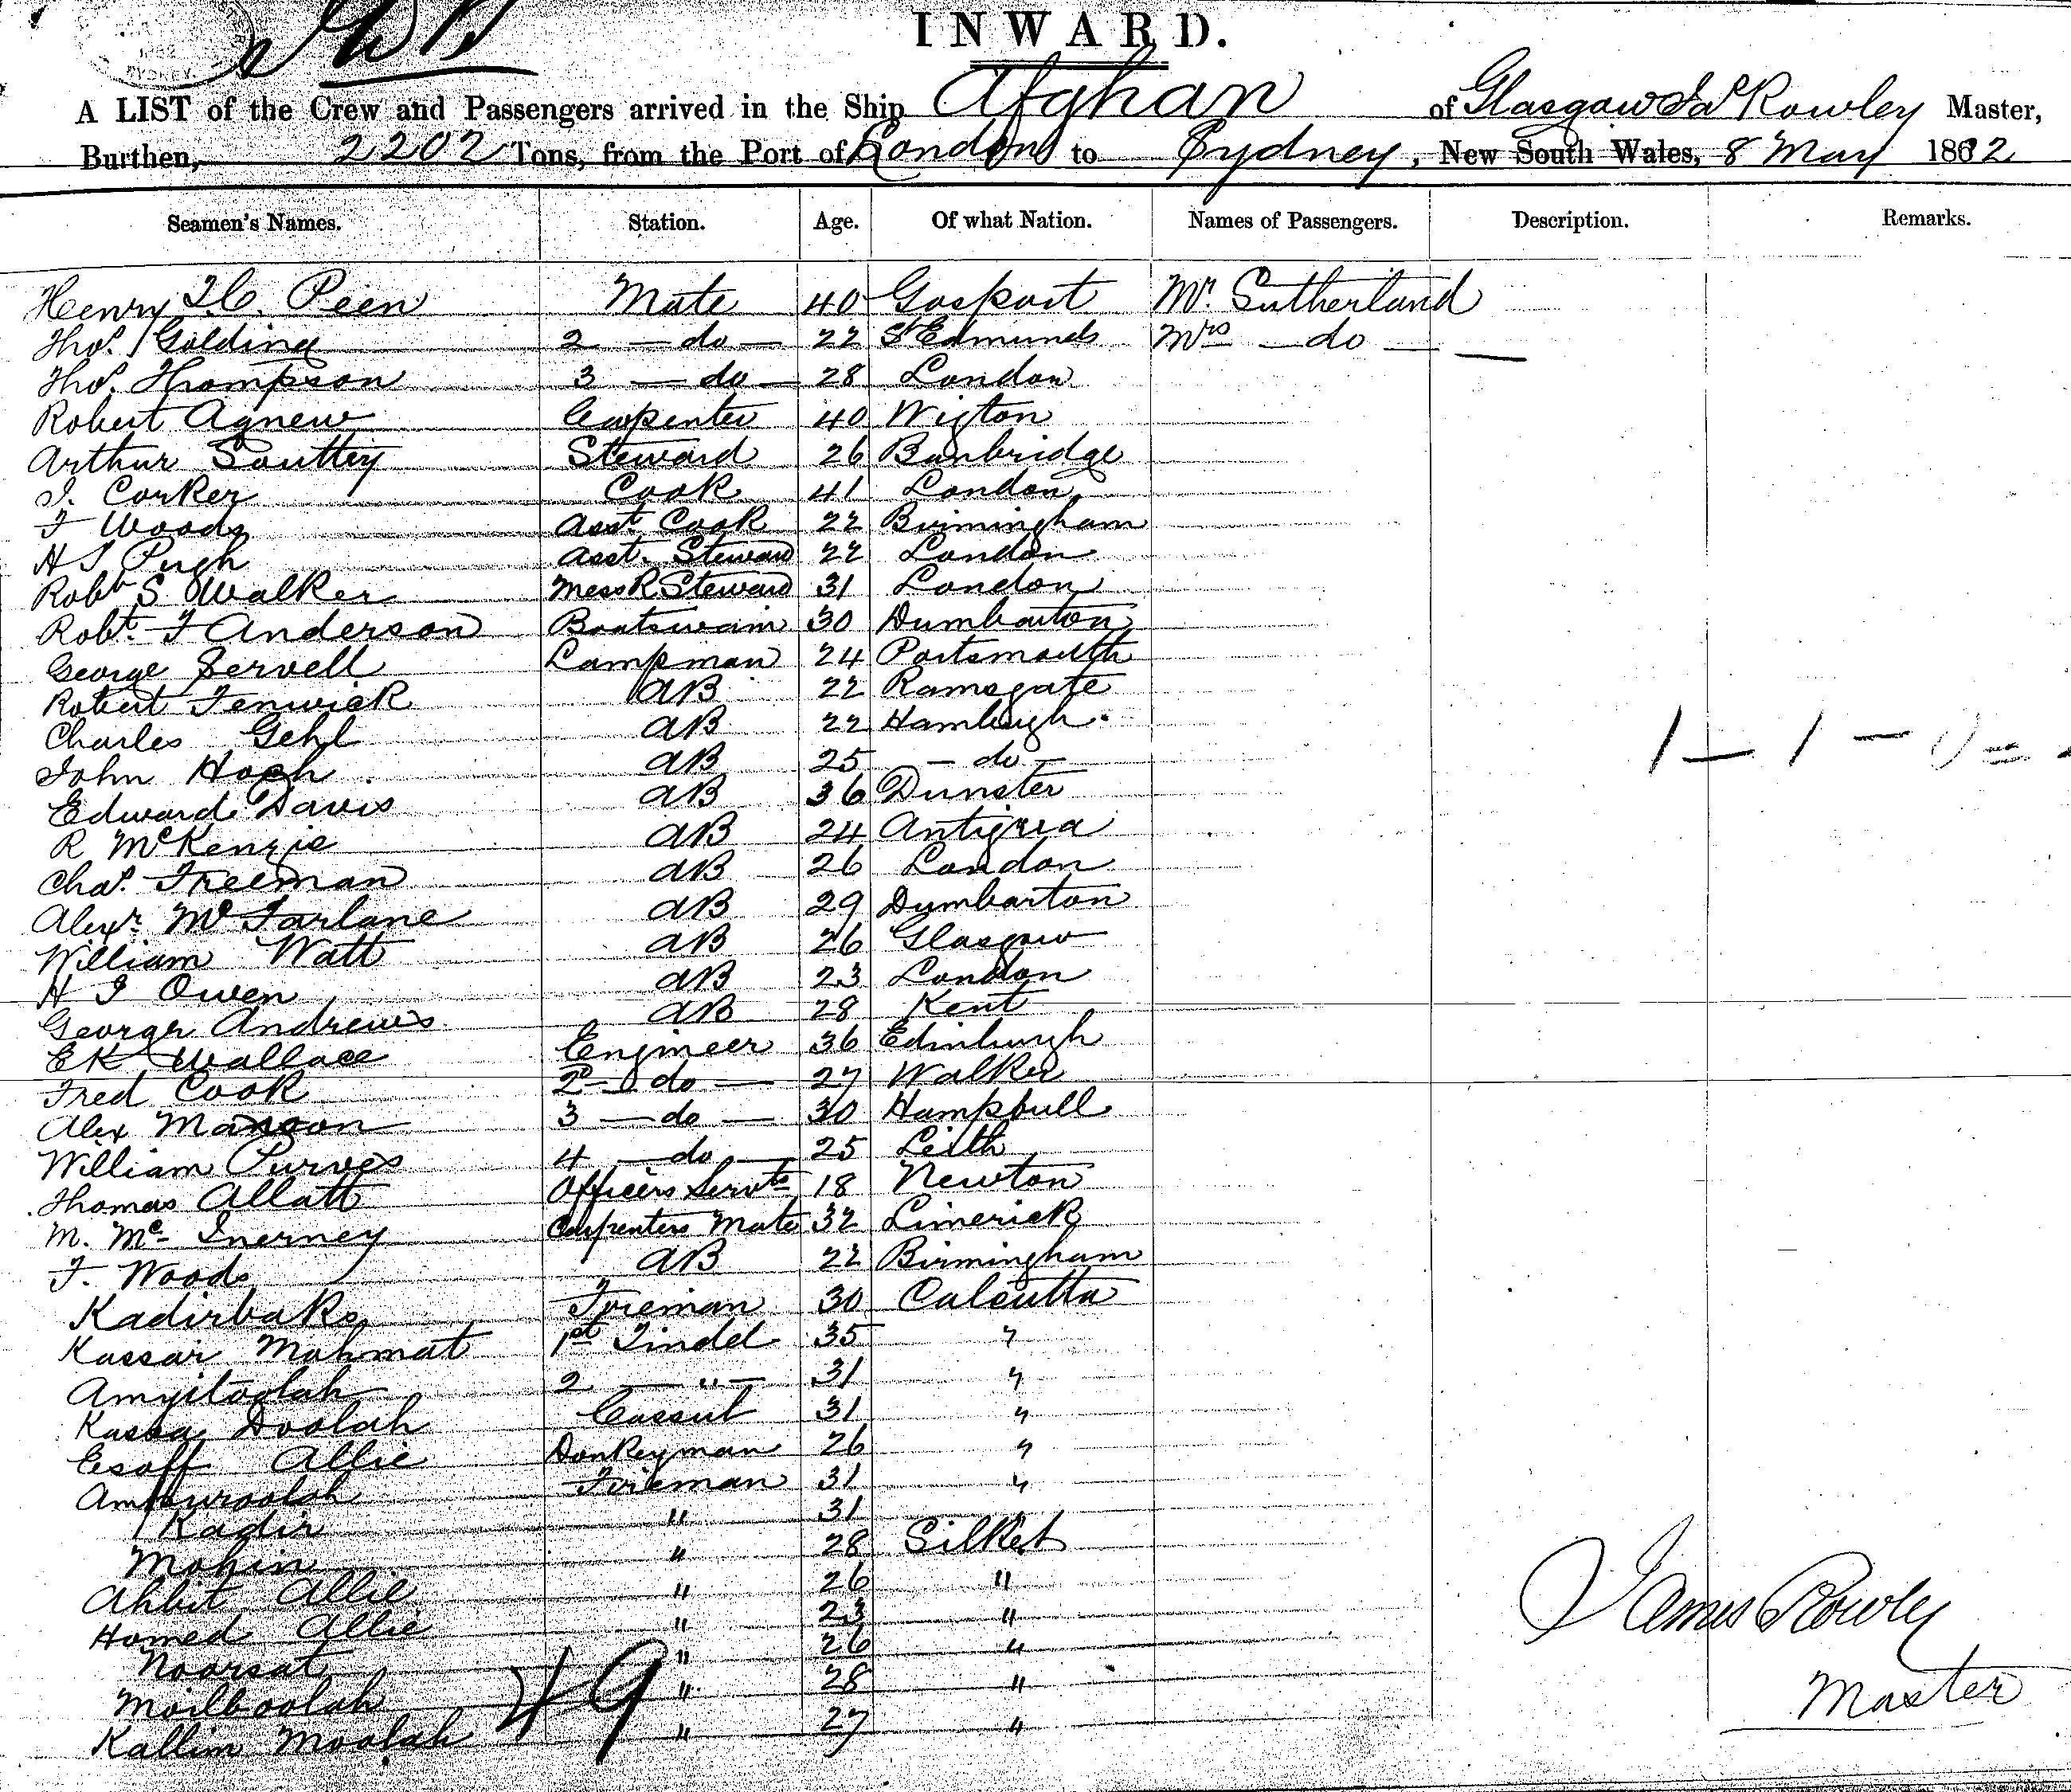 INWARD.
A LIST of the Crew and Passengers arrived in the Ship Afghan of Glasgow Jas Rowley Master,
Burthen, 2202 Tons, from the Port of London to Sydney, New South Wales, 8 May 1882
Seamen's Names. Station. Age. Of what Nation. Names of Passengers. Description. Remarks.
Henry Peen Mate 40 Gosport Mr. Sutherland
Thos. Golding 2 — do — 22 St Edmunds Mrs — do —
Thos. Thompson 3 — do — 28 London
Robert Agnew Carpenter 40 Wigton
Arthur Souttey Steward 26 Banbridge
J. Corker Cook 41 London
F Woods Asst. Cook 22 Birmingham
H J Pugh Asst. Steward 22 London
Robt S Walker Mess R Steward 31 London
Robt. F Anderson Boatswain 30 Dumbarton
George Servell Lampman 24 Portsmouth
Robert Fenwick AB 22 Ramsgate
Charles Gehl AB 22 Hamburgh.
John Hoch AB 25 — do —
Edward Davis AB 36 Dunster
R McKenzie AB 24 Antigua
Chas. Freeman AB 26 London
Alexr. McFarlane AB 29 Dumbarton
William Watt AB 26 Glasgow
H J Owen AB 23 London
George Andrews AB 28 Kent
E K Wallace Engineer 36 Edinburgh
Fred Cook 2 — do — 27 Walker
Alex Manson 3 — do — 30 Hampbull
William Purves 4 — do — 25 Leith
Thomas Allatt Officers Servts 18 Newton
M. Mc Inerney Carpenters Mate 32 Limerick
F. Woods AB 22 Birmingham
Kadirbaks Fireman 30 Calcutta
Kassar Mahmat 1st Tindel 35 "
Amyitoolah 2 — " — 31 "
Kassa Doolah Cassub 31 "
Esoff Allie Donkeyman 26 "
Amburoolah Fireman 31 "
Kadir " 31
Mohin " 28 Silket
Ahbit Allie " 26 "
Homed Allie " 23 "
Noorsat " 26 "
Moilboolah " 28 "
Kallim Moolah " 27 "
49
James Rowley
Master